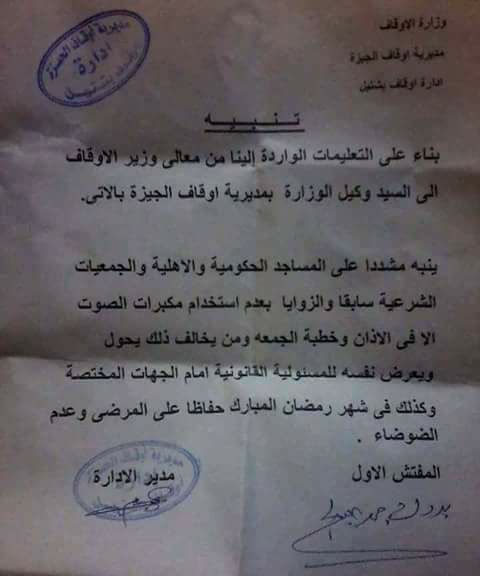 وزارة الاوقاف
مديرية اوقاف الجيزة
ادارة اوقاف بشتيل
مديرية اوقاف الجيزة
ادارة
اوقاف بشتيل
تنبيه
بناء على التعليمات الواردة إلينا من معالى وزير الاوقاف
الى السيد وكيل الوزارة بمديرية اوقاف الجيزة بالاتى.
ينبه مشددا على المساجد الحكومية والاهلية والجمعيات
الشرعية سابقا والزوايا بعدم استخدام مكبرات الصوت
الا فى الاذان وخطبة الجمعه ومن يخالف ذلك يحول
ويعرض نفسه للمسئولية القانونية امام الجهات المختصة
وكذلك فى شهر رمضان المبارك حفاظا على المرضى وعدم
الضوضاء .
المفتش الاول
مدير الادارة
مديرية اوقاف الجيزة